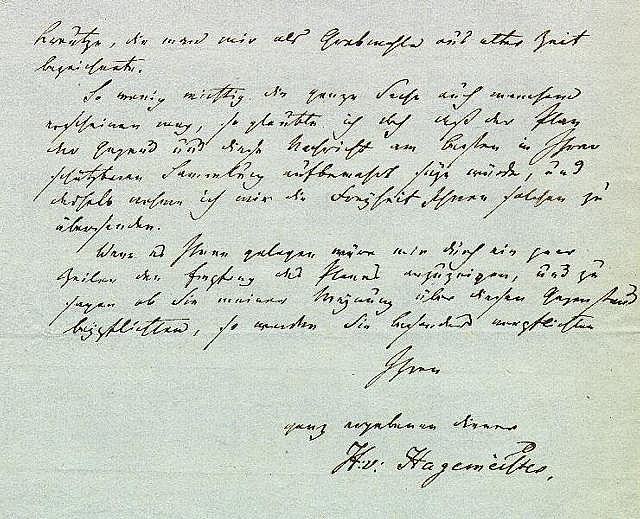 Kreutze, die man mir als Grabmahle aus alter Zeit
bezeichnete.
So wenig wichtig die ganze Sache auch manchem
erscheinen mag, so glaubte ich doch daß der Plan
der Gegend und diese Nachricht am besten in Ihrer
schätzbaren Sammlung aufbewahrt seyn würde, und
deshalb nehme ich mir die Freyheit Ihnen solchen zu
übersenden.
Wenn es Ihnen gelegen wäre mir durch ein paar
Zeilen den Empfang des Planes anzuzeigen, und zu
sagen ob Sie meiner Meynung über diesen Gegenstand
beypflichten, so werden Sie besonders verpflichten
Ihren
ganz ergebenen Diener
H: v: Hagemeister.